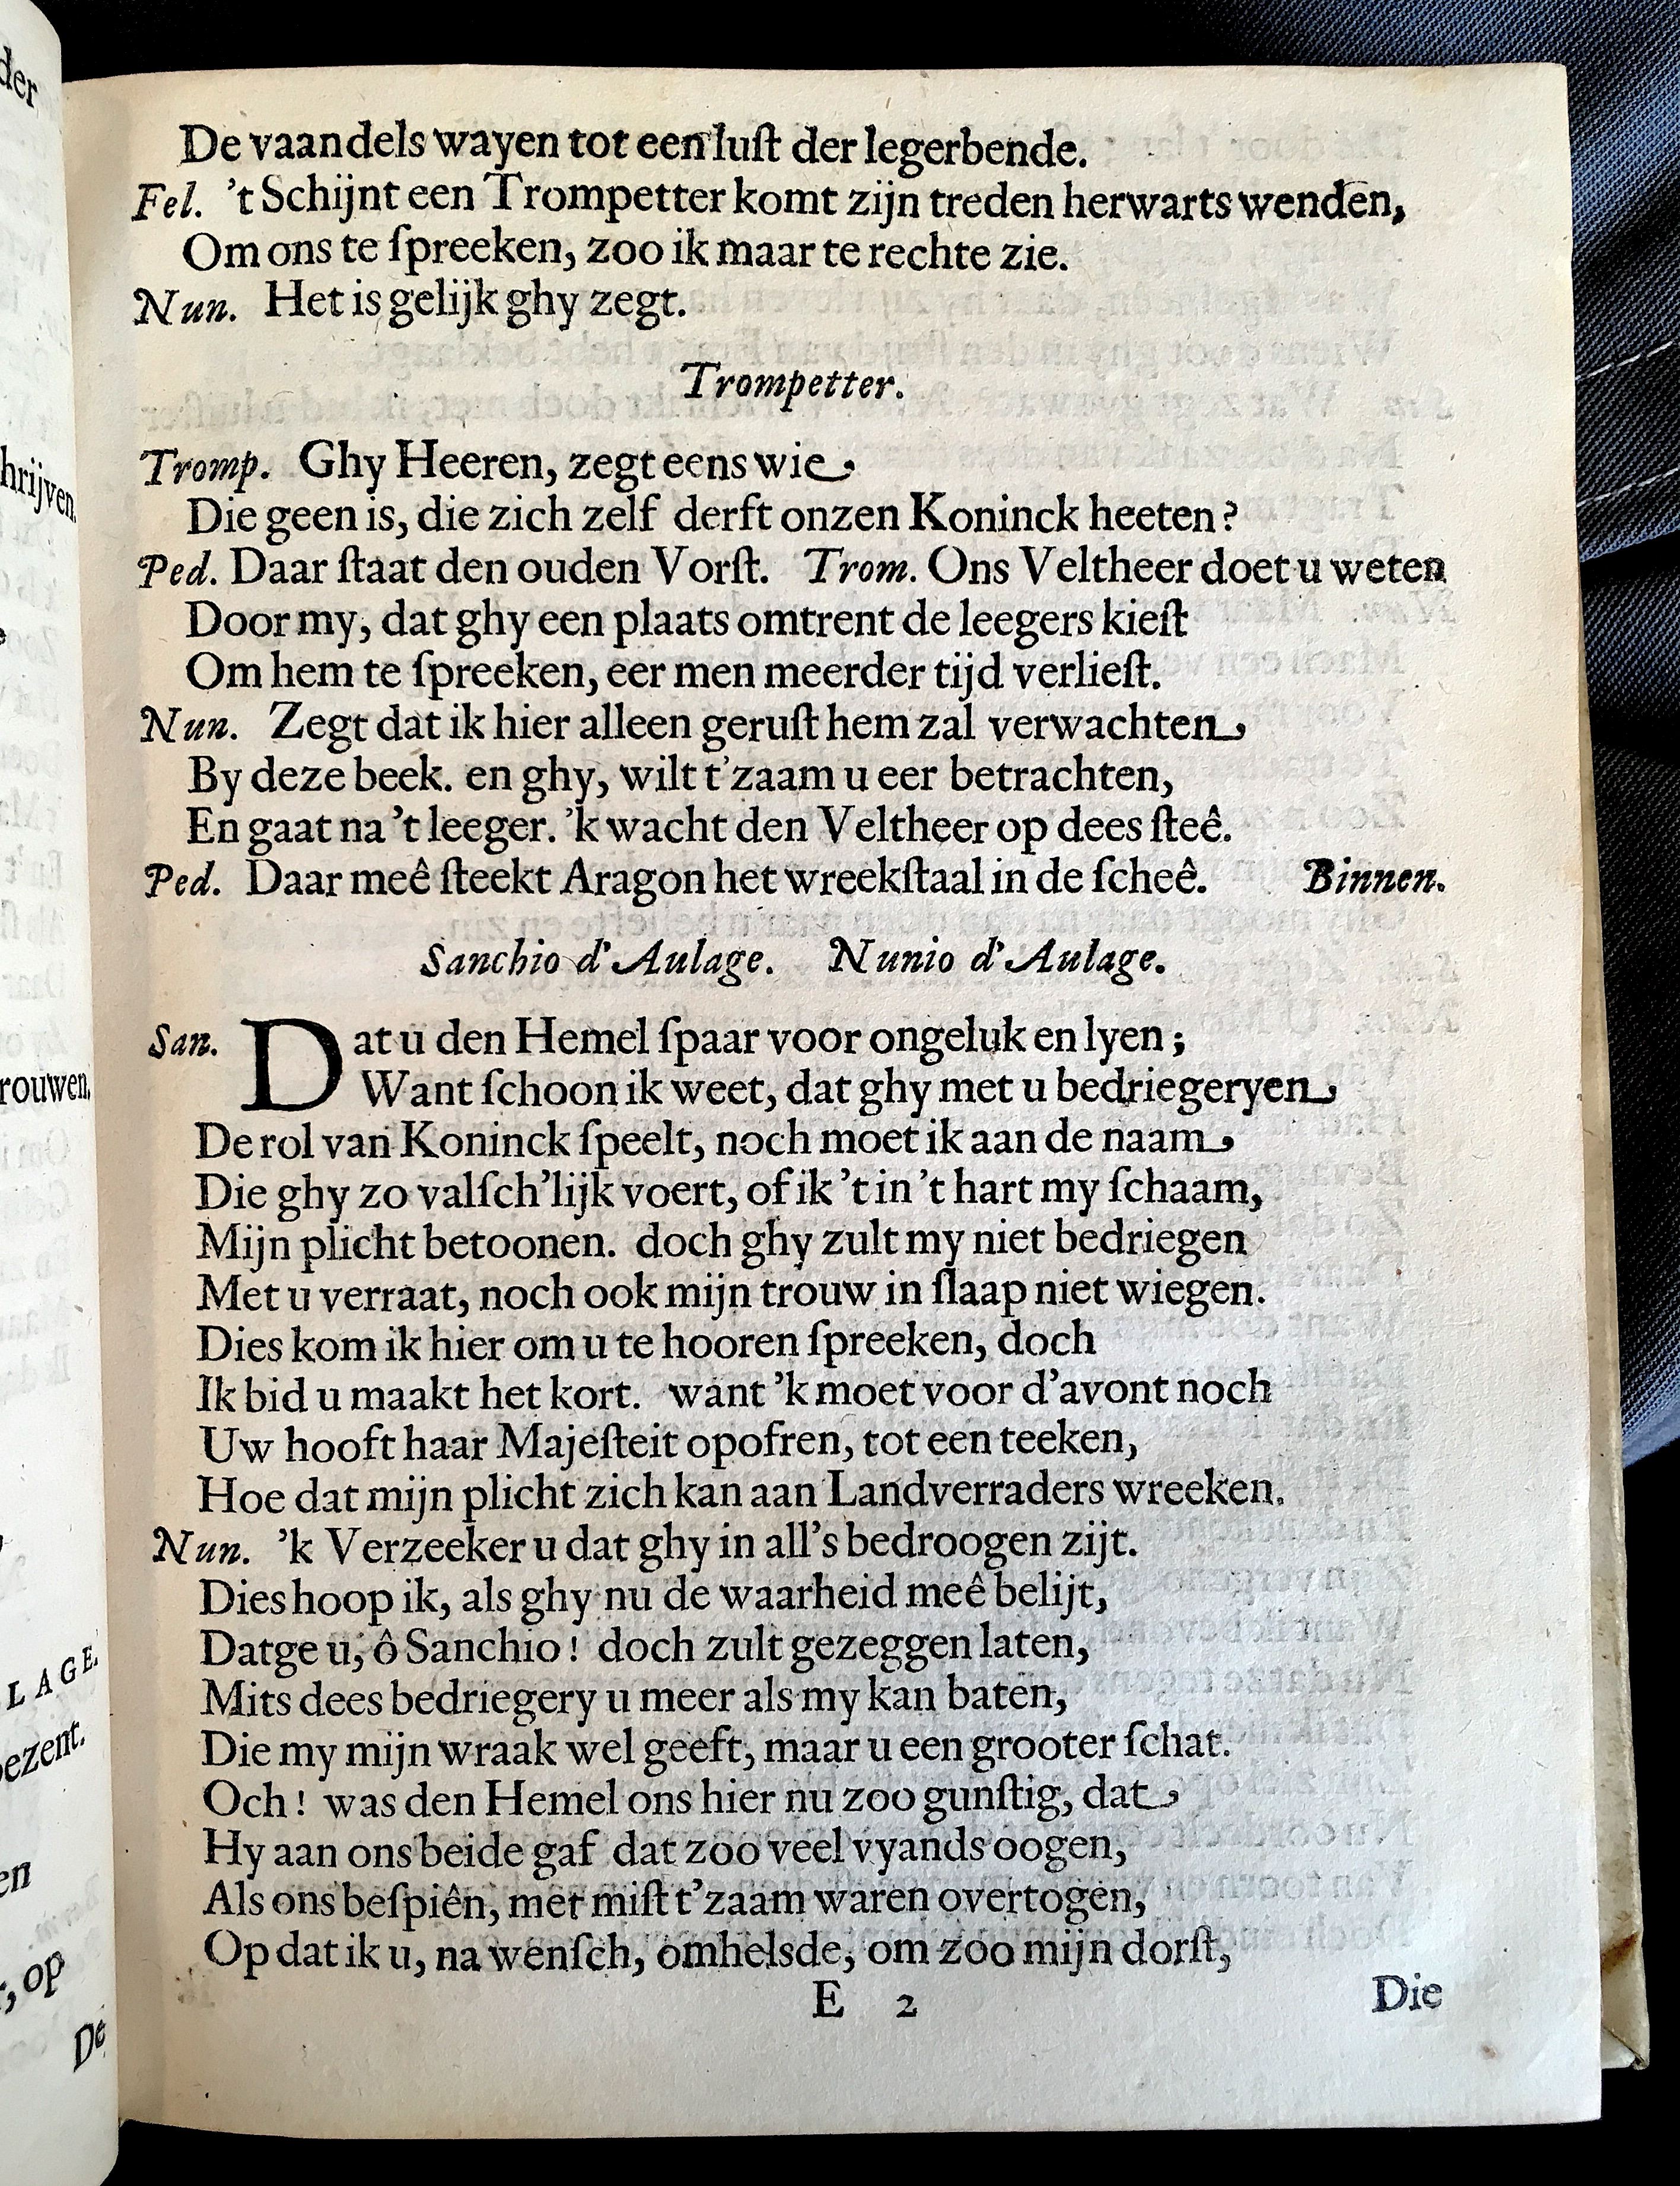 De vaandels wayen tot een luſt der legerbende.
Fel. 't Schijnt een Trompetter komt zijn treden herwarts wenden,
Om ons te ſpreeken, zoo ik maar te rechte zie.
Nun. Het is gelijk ghy zegt.
Trompetter.
Tromp. Ghy Heeren, zegt eens wie
Die geen is, die zich zelf derft onzen Koninck heeten?
Ped. Daar ſtaat den ouden Vorſt. Trom. Ons Veltheer doet u weten
Door my, dat ghy een plaats omtrent de leegers kieſt
Om hem te ſpreeken, eer men meerder tijd verlieſt.
Nun. Zegt dat ik hier alleen geruſt hem zal verwachten
By deze beek. en ghy, wilt t'zaam u eer betrachten,
En gaat na 't leeger. 'k wacht den Veltheer op dees ſteê.
Ped. Daar meê ſteekt Aragon het wreekſtaal in de ſcheê. Binnen.
Sanchio d'Aulage. Nunio d'Aulage.
San. Dat u den Hemel ſpaar voor ongeluk en lyen;
Want ſchoon ik weet, dat ghy met u bedriegeryen
De rol van Koninck ſpeelt, noch moet ik aan de naam
Die ghy zo valſch'lijk voert, of ik 't in 't hart my ſchaam,
Mijn plicht betoonen. doch ghy zult my niet bedriegen
Met u verraat, noch ook mijn trouw in ſlaap niet wiegen.
Dies kom ik hier om u te hooren ſpreeken, doch
Ik bid u maakt het kort. want 'k moet voor d'avont noch
Uw hooft haar Majeſteit opofren, tot een teeken,
Hoe dat mijn plicht zich kan aan Landverraders wreeken.
Nun. 'k Verzeeker u dat ghy in all's bedroogen zijt.
Dies hoop ik, als ghy nu de waarheid meê belijt,
Datge u, ô Sanchio! doch zult gezeggen laten,
Mits dees bedriegery u meer als my kan baten,
Die my mijn wraak wel geeft, maar u een grooter ſchat.
Och! was den Hemel ons hier nu zoo gunſtig, dat
Hy aan ons beide gaf dat zoo veel vyands oogen,
Als ons beſpiên, met miſt t'zaam waren overtogen,
Op dat ik u, na wenſch, omhelsde, om zoo mijn dorſt,
E 2 Die
der
hrijven.
rouwen,
LAGE.
ezent.
en
, op
De